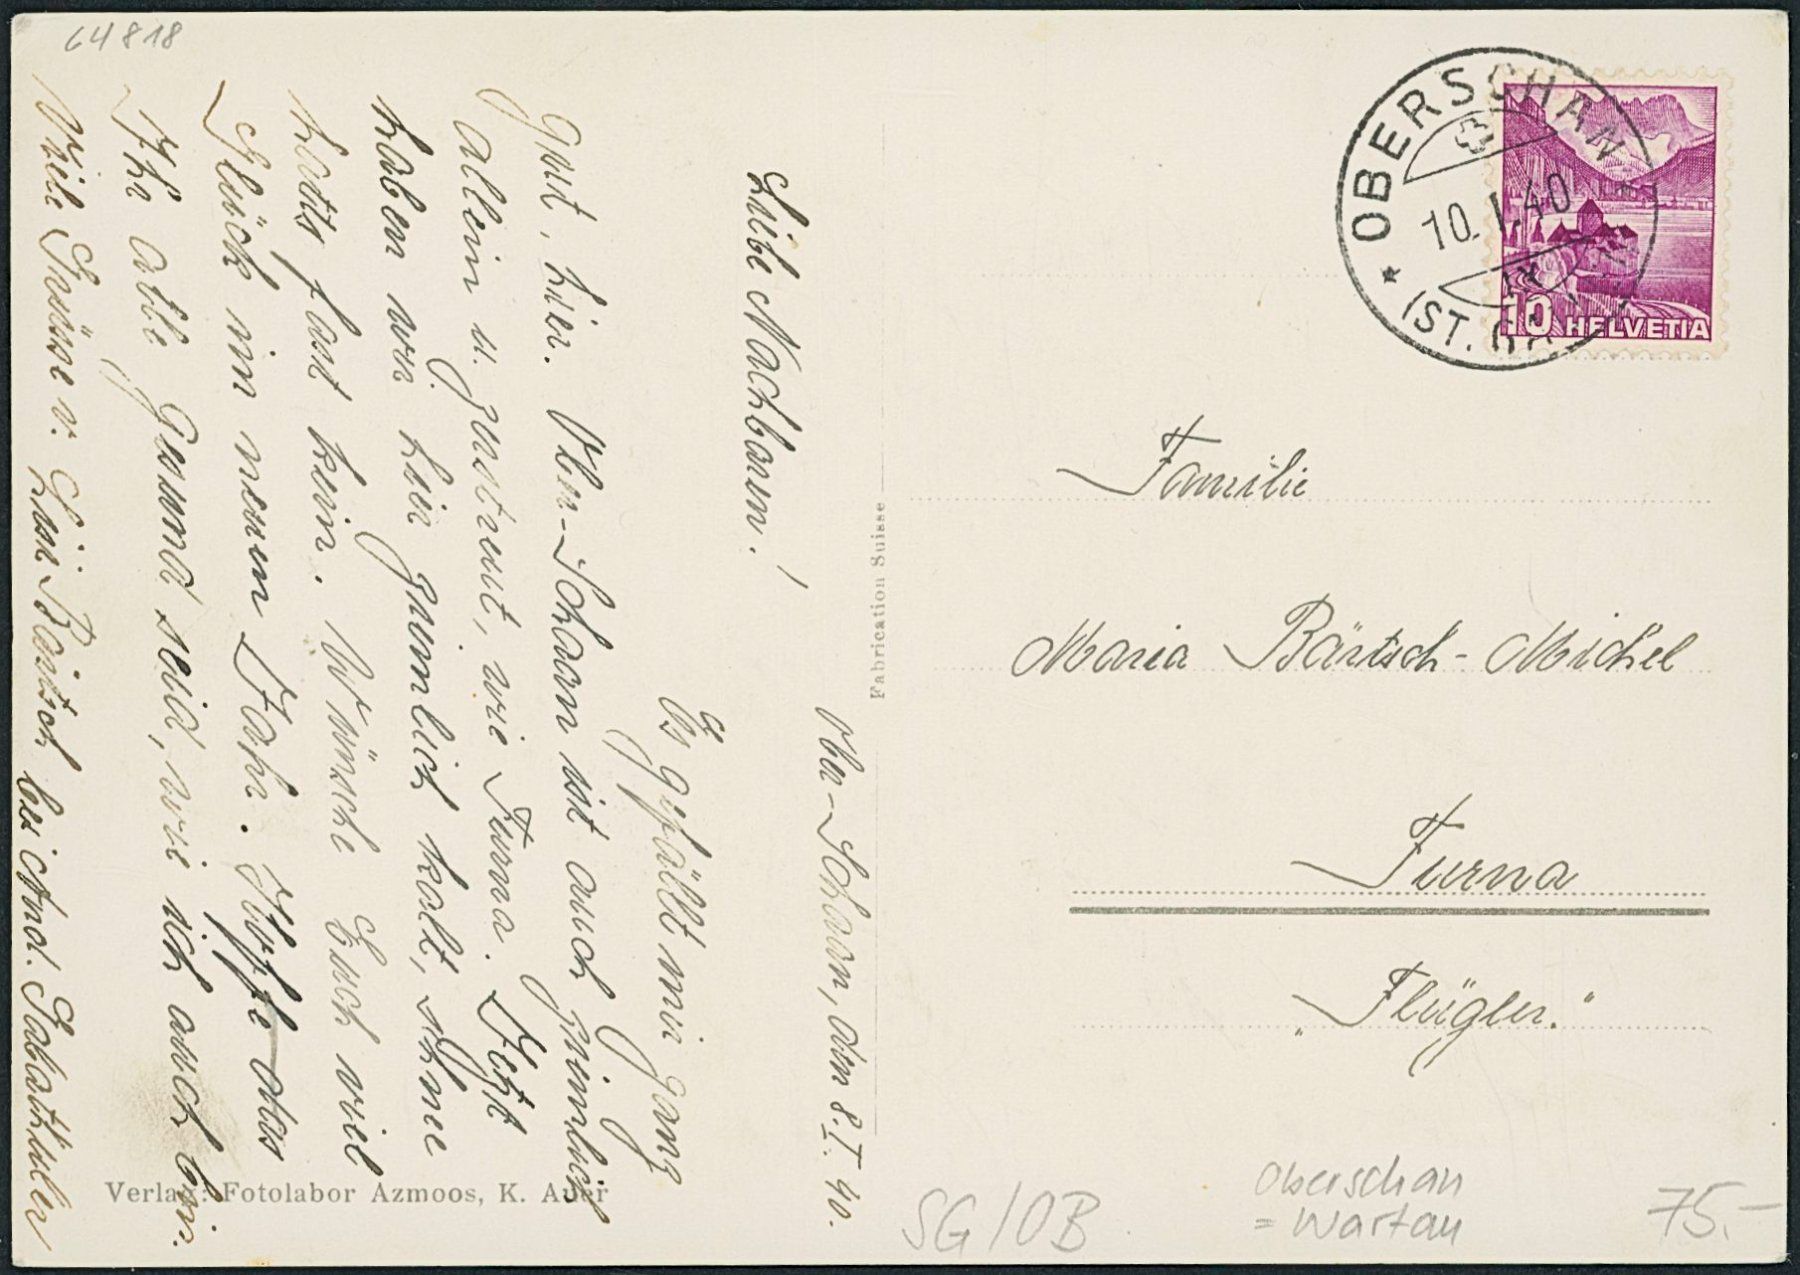 64818
Ober-Schaan, den 8.I.40.
Liebe Nachbarn!
Es gefällt mir ganz
gut, hier. Ober-Schaan ist auch ziemlich
allein u. zerstreut, wie Furna. Jetzt
haben wir hier ziemlich kalt, ohne
hatts fast kein. Wünsche Euch viel
Glück im neuen Jahr. Hoffe das
Ihr alle gesund seid, wie ich auch bin.
Viele Grüsse v. Bärtsch bei And. Gabathuler
Fabrication Suisse
Verlag: Fotolabor Azmoos, K. Auer
OBERSCHAN
10.I.40
IX
(ST. GALLEN)
10 HELVETIA
Familie
Maria Bärtsch-Michel
Furna
"Flügler."
SG/OB
Oberschan
= Wartau
75.-